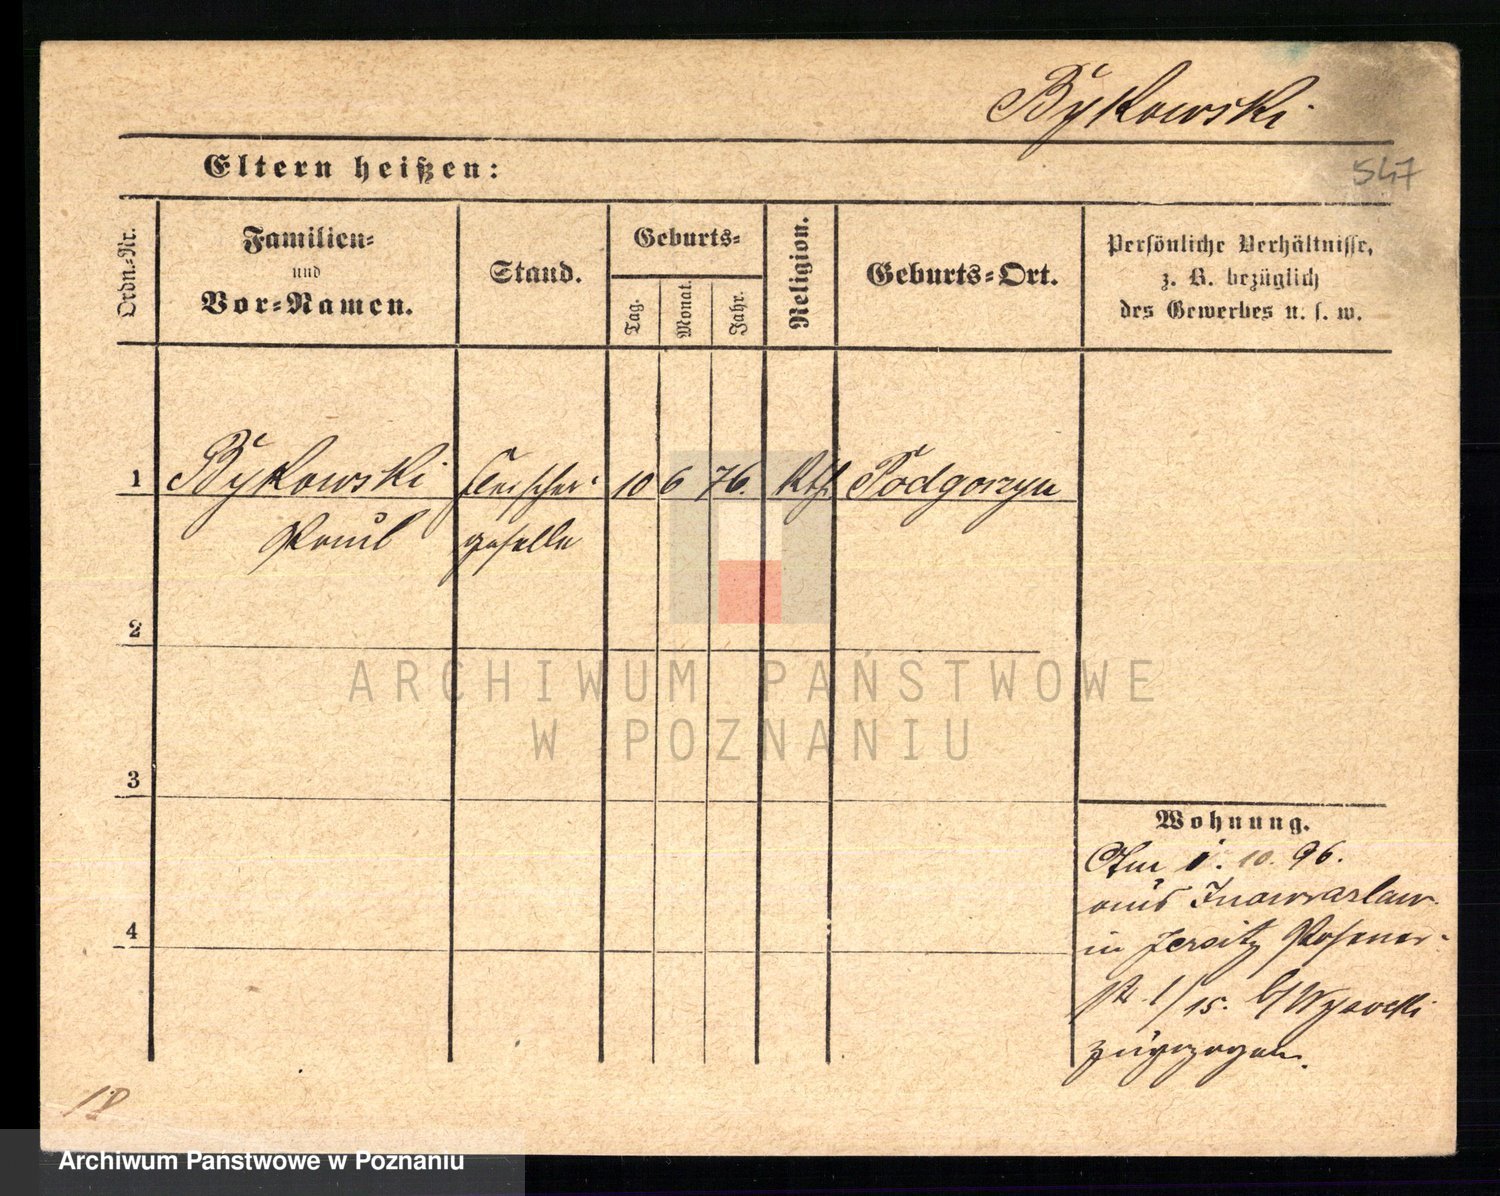 Bykowski
547
Eltern heißen:
Ordn.-Nr.
Familien-
und
Vor-Namen.
Stand.
Geburts-
Tag.
Monat.
Jahr.
Religion.
Geburts-Ort.
Persönliche Verhältnisse,
z. B. bezüglich
des Gewerbes u. s. w.
1
Bykowski Fleischer- 10 6 76. Kth. Podgorzyn
Paul geselle
2
3
4
Wohnung.
Am 1. 10. 96.
aus Inowrazlaw
in Jersitz Posener-
str. 1/15. b/
zugezogen.
18
ARCHIWUM PAŃSTWOWE
W POZNANIU
Archiwum Państwowe w Poznaniu